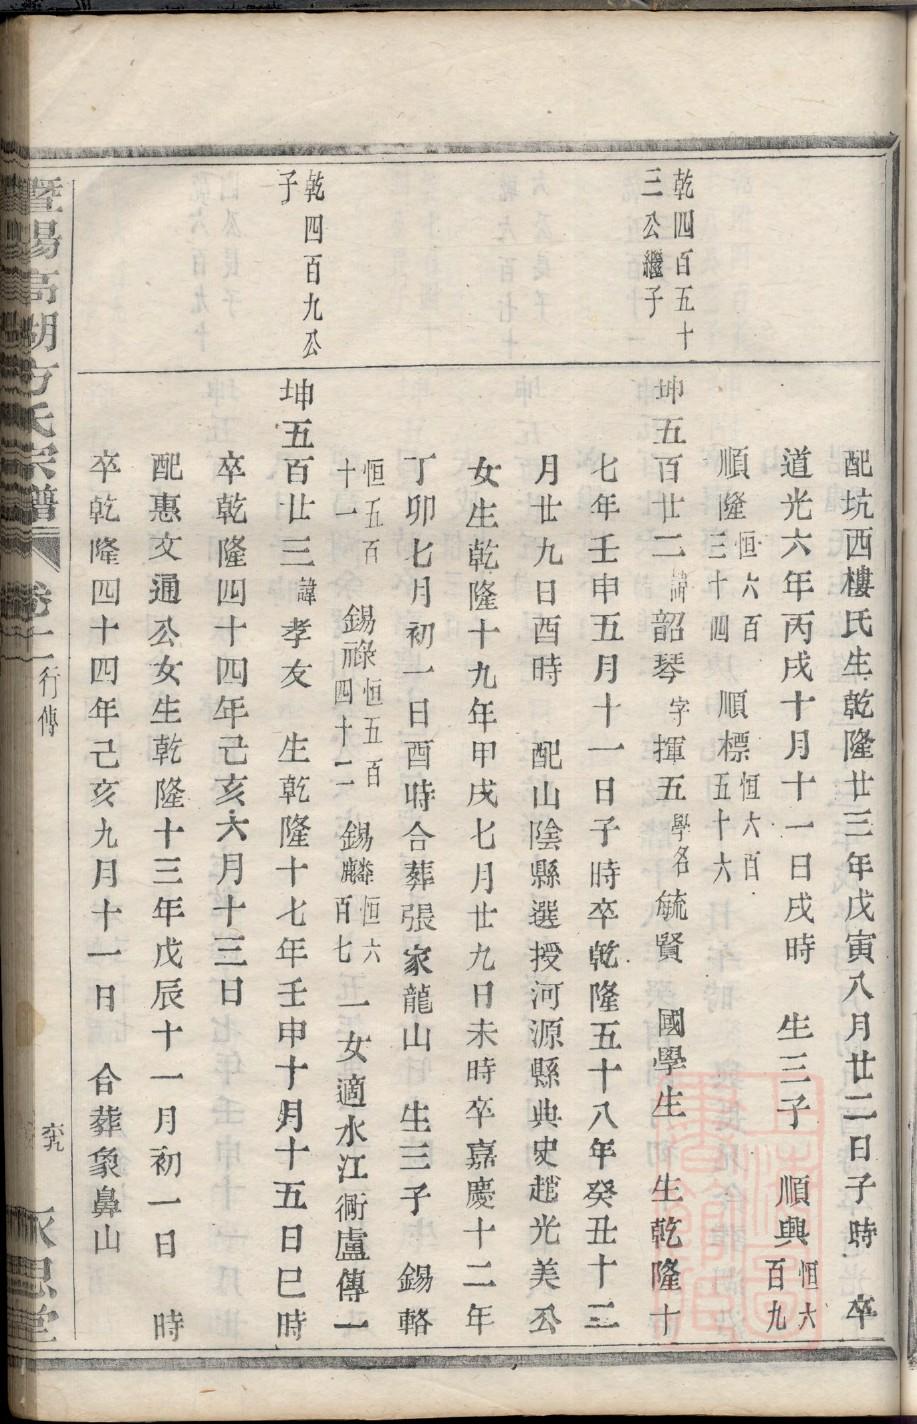 配坑西樓氏生乾隆廿三年戊寅八月廿二日子時 卒
道光六年丙戌十月十一日戌時 生三子 順興恒六百九
順隆恒六百三十四 順標恒六百五十六
乾四百五十三公繼子
坤五百廿二諱韶琴字揮五學名毓賢 國學生 生乾隆十
七年壬申五月十一日子時卒乾隆五十八年癸丑十二
月廿九日酉時 配山陰縣選授河源縣典史趙光美公
女生乾隆十九年甲戌七月廿九日未時卒嘉慶十二年
丁卯七月初一日酉時合葬張家龍山 生三子 錫輅
恒五百十一 錫祿恒五百四十二 錫麟恒六百七 一女適水江衕盧傳一
乾四百九公子
坤五百廿三諱孝友 生乾隆十七年壬申十月十五日巳時
卒乾隆四十四年己亥六月十三日
配惠文通公女生乾隆十三年戊辰十一月初一日 時
卒乾隆四十四年己亥九月十一日 合葬象鼻山
暨陽高湖方氏宗譜 卷十一 行傳 永思堂